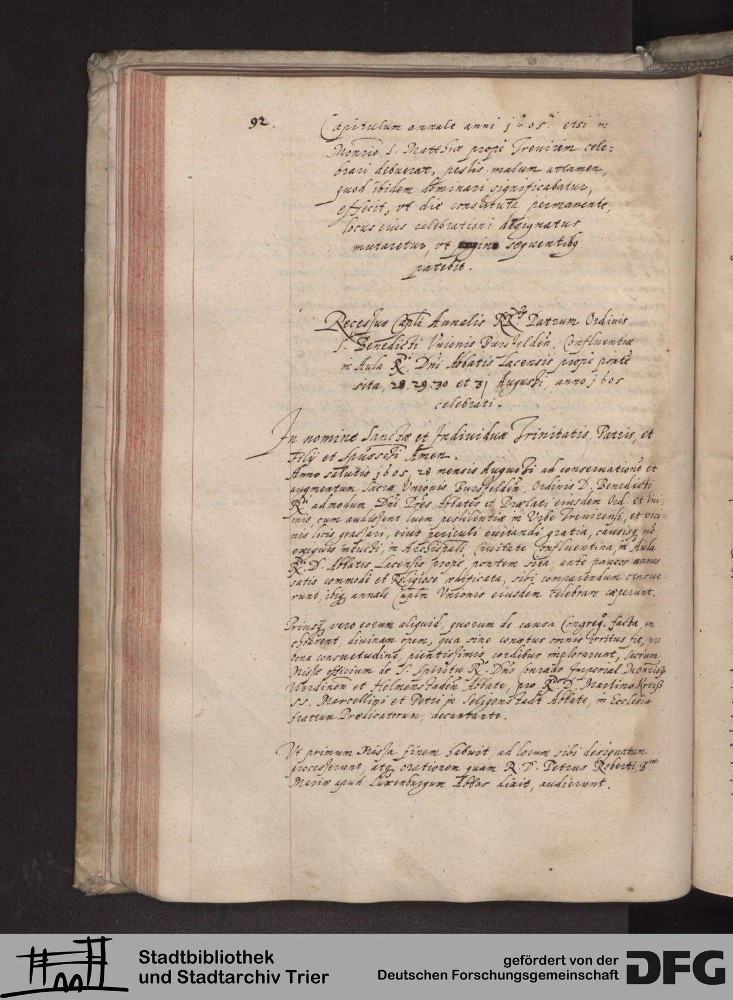 92.
Capitulum annale anni 1605 etsi in
Monrio S. Matthiæ prope Trevirem cele-
brari debuerat, pestis malum attamen,
quod ibidem dominari significabatur,
effecit, vt die constituta permanente,
locus eius celebrationi designatus
mutaretur, vt sequentibq
patebit.
Recessus Capli Annalis RR Patrum Ordinis
S. Benedicti Vnionis Bursfelden̄. Confluentiæ
in Aula R. Dni Abbatis Lacensis prope ponte
sita, 28. 29. 30 et 31 Augusti, anno 1605
celebrati.
In nomine Sanctæ et Individuæ Trinitatis, Patris, et
Filij et Spūs Amen.
Anno salutis 1605, 28 mensis Augusti ad conservatione et
augmentum sacræ Vnionis Bursfelden̄. Ordinis D. Benedicti
admodum Dni Abbates et Prælati eiusdem Ord. et
cum audissent luem pestilentiæ in Vrbe Trevirensi, et vici-
nis locis grassari, eius periculi evitandi gratia, causisq
in Archiepali Civitate Confluentina, in Aula
R. D. Abbatis Lacensis prope pontem sita, ante paucos annos
satis commode et Religiose ædificata, sibi comparendum censue-
runt, ibiq annale Caplm Vnionis eiusdem celebrare cœperunt.
Priusq vero eorum aliquid, quorum de causa Congreg. facta, in-
choarent, divinam opem, qua sine conatus omnis irritus fit,
bona consuetudine, pientissimis cordibus implorarunt, sacrum
Missæ officium de S. Spiritu R. Dno Conrado Imperial.
Werdinen et Helmenstaden Abbate, pro D. Martino Kreiß
SS. Marcellini et Petri in Seligenstadt Abbate, in Ecclesia
fratrum Prædicatorum, decantante.
Vt primum Missa finem habuit ad locum sibi designatum
processerunt, atq orationem quam R. D. Petrus Roberti
Mariæ apud Luxenburgum Abbas dixit, audierunt.
Stadtbibliothek
und Stadtarchiv Trier
gefördert von der
Deutschen Forschungsgemeinschaft
DFG